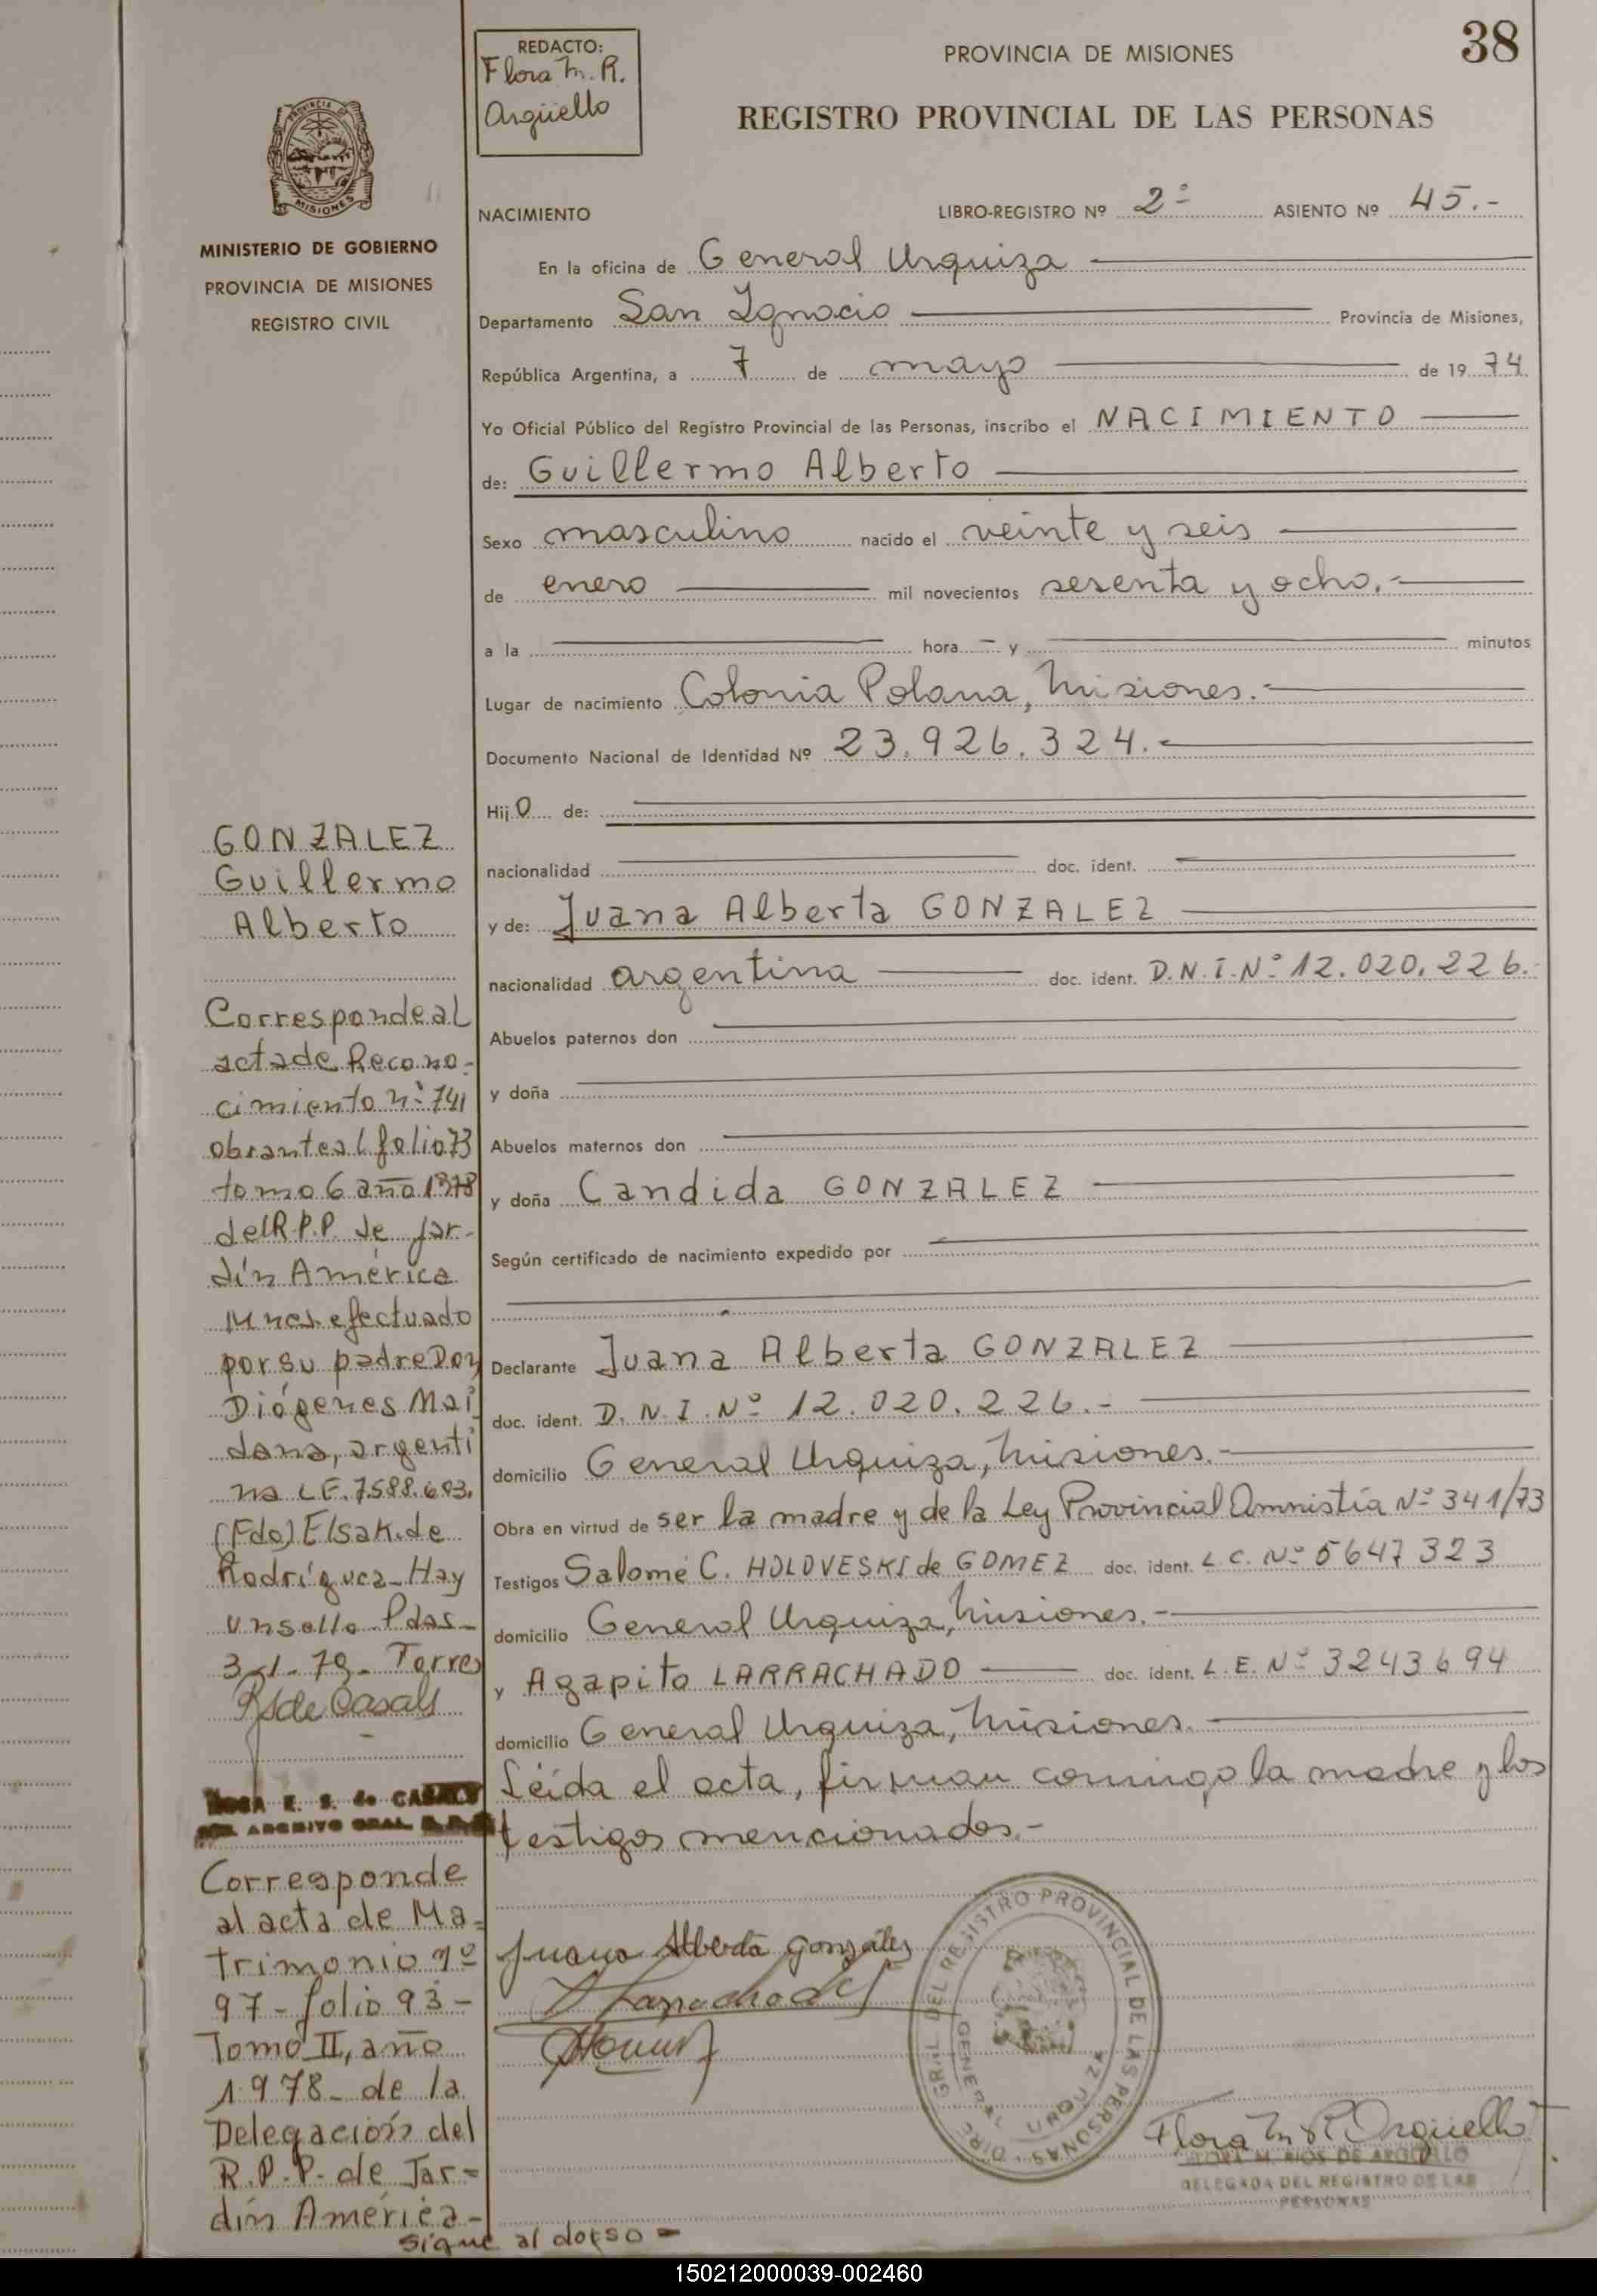 REDACTO:
Flora M. R.
Argüello
PROVINCIA DE MISIONES
38
REGISTRO PROVINCIAL DE LAS PERSONAS
PROVINCIA DE
MISIONES
MINISTERIO DE GOBIERNO
PROVINCIA DE MISIONES
REGISTRO CIVIL
NACIMIENTO
LIBRO-REGISTRO Nº 2º ASIENTO Nº 45.-
En la oficina de General Urquiza
Departamento San Ignacio Provincia de Misiones,
República Argentina, a 7 de mayo de 19 74
Yo Oficial Público del Registro Provincial de las Personas, inscribo el NACIMIENTO
de: Guillermo Alberto
Sexo masculino nacido el veinte y seis
de enero mil novecientos sesenta y ocho.-
a la hora y minutos
Lugar de nacimiento Colonia Polana, Misiones.-
Documento Nacional de Identidad Nº 23.926.324.-
Hijo de:
nacionalidad doc. ident.
y de: Juana Alberta GONZALEZ
nacionalidad argentina doc. ident. D.N.I.Nº 12.020.226.-
Abuelos paternos don
y doña
Abuelos maternos don
y doña Candida GONZALEZ
Según certificado de nacimiento expedido por
Declarante Juana Alberta GONZALEZ
doc. ident. D.N.I.Nº 12.020.226.-
domicilio General Urquiza, Misiones.-
Obra en virtud de ser la madre y de la Ley Provincial Amnistía Nº 341/73
Testigos Salomé C. HOLOVESKI de GOMEZ doc. ident. L.C. Nº 5647323
domicilio General Urquiza, Misiones.-
y Agapito LARRACHADO doc. ident. L.E. Nº 3243694
domicilio General Urquiza, Misiones.
Leída el acta, firman conmigo la madre y los
testigos mencionados.-
Juana Alberta González
DIRE. GRAL. DEL REGISTRO PROVINCIAL DE LAS PERSONAS
GENERAL URQUIZA
Flora M R Argüello
FLORA M. RIOS DE ARGUELLO
DELEGADA DEL REGISTRO DE LAS
PERSONAS
GONZALEZ
Guillermo
Alberto
Corresponde al
acta de Recono-
cimiento nº 741
obrante al folio 73
tomo 6 año 1978
del R.P.P. de Jar-
dín América
efectuado
por su padre Don
Diógenes Mai
dana, argenti
na L.E. 7.588.603.
(Fdo) Elsa K. de
Rodríguez - Hay
un sello Pdas-
3-1-79- Torres
R S de Casals
ROSA E. S. de CASALS
ARCHIVO GRAL.
Corresponde
al acta de Ma-
trimonio nº
97 - folio 93 -
Tomo II, año
1978 - de la
Delegación del
R.P.P. de Jar-
dín América -
sigue al dorso -
150212000039-002460